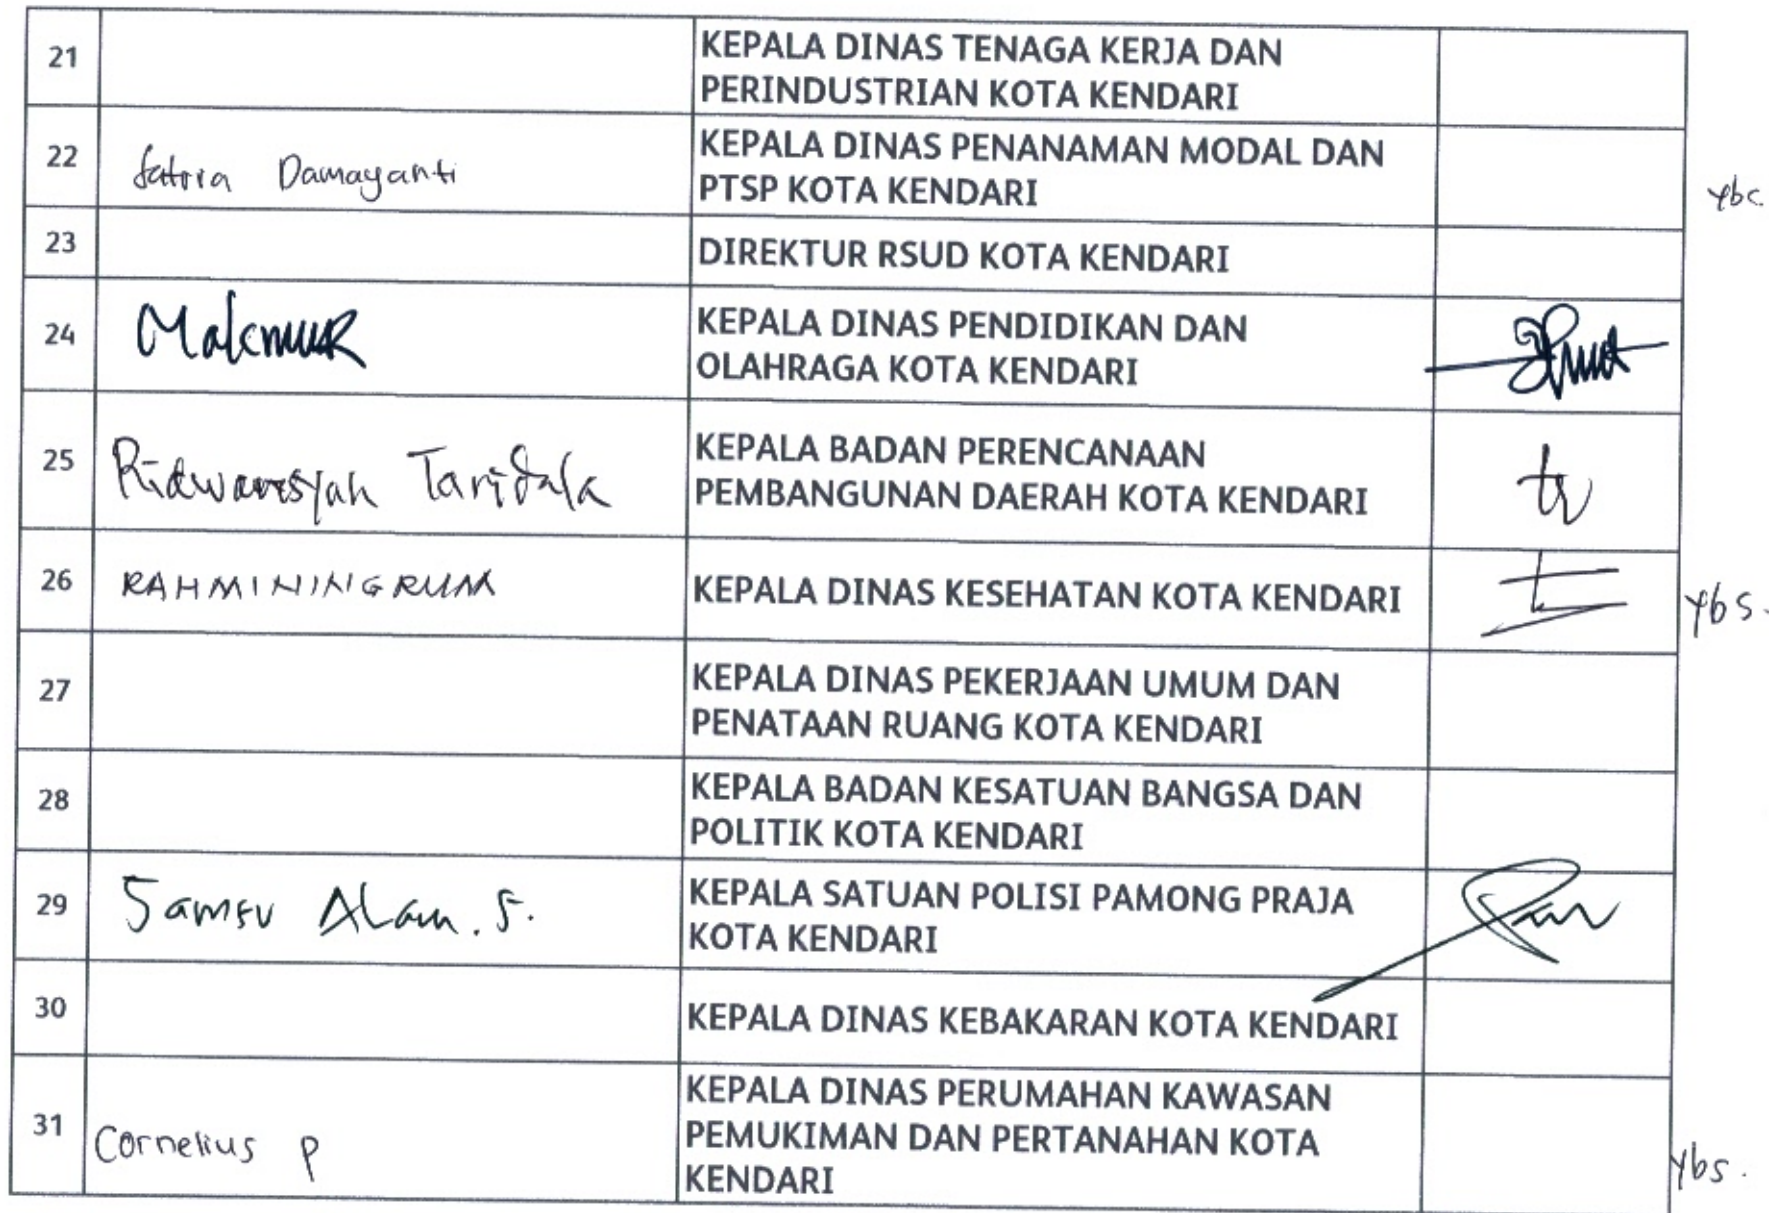 21 KEPALA DINAS TENAGA KERJA DAN
PERINDUSTRIAN KOTA KENDARI
22 Satria Damayanti KEPALA DINAS PENANAMAN MODAL DAN
PTSP KOTA KENDARI
23 DIREKTUR RSUD KOTA KENDARI
24 Makmur KEPALA DINAS PENDIDIKAN DAN
OLAHRAGA KOTA KENDARI
25 Ridwansyah Taridala KEPALA BADAN PERENCANAAN
PEMBANGUNAN DAERAH KOTA KENDARI
26 RAHMININGRUM KEPALA DINAS KESEHATAN KOTA KENDARI ybs.
27 KEPALA DINAS PEKERJAAN UMUM DAN
PENATAAN RUANG KOTA KENDARI
28 KEPALA BADAN KESATUAN BANGSA DAN
POLITIK KOTA KENDARI
29 Samsu Alam. S. KEPALA SATUAN POLISI PAMONG PRAJA
KOTA KENDARI
30 KEPALA DINAS KEBAKARAN KOTA KENDARI
31 Cornelius P KEPALA DINAS PERUMAHAN KAWASAN
PEMUKIMAN DAN PERTANAHAN KOTA
KENDARI ybs.